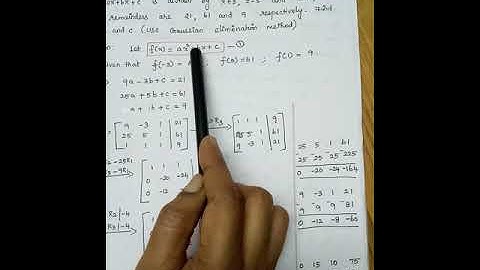 ax²+bx+c is divided by x+3, x-5 and
remainders are 21, 61 and 9 respectively. Find
and c (use Gaussian elimination method)
Let f(x) = ax² bx + c — ①
given that f(-3) = ; f(5)=61 ; f(1) = 9
9a - 3b + c = 21
25a + 5b + c = 61
a + b + c = 9
9 -3 1 21
25 5 1 61
1 1 1 9
R3
1 1 1 9
25 5 1 61
9 -3 1 21
-25R1
-9R1
1 1 1
0 -20 -24
0 -12
R2/-4
R3/-4
25 5 1 61
-25 -25 -25 -225
0 -20 -24 -164
9 -3 1 21
-9 -9 -9 -81
0 -12 -8 -60
0 15 10 75